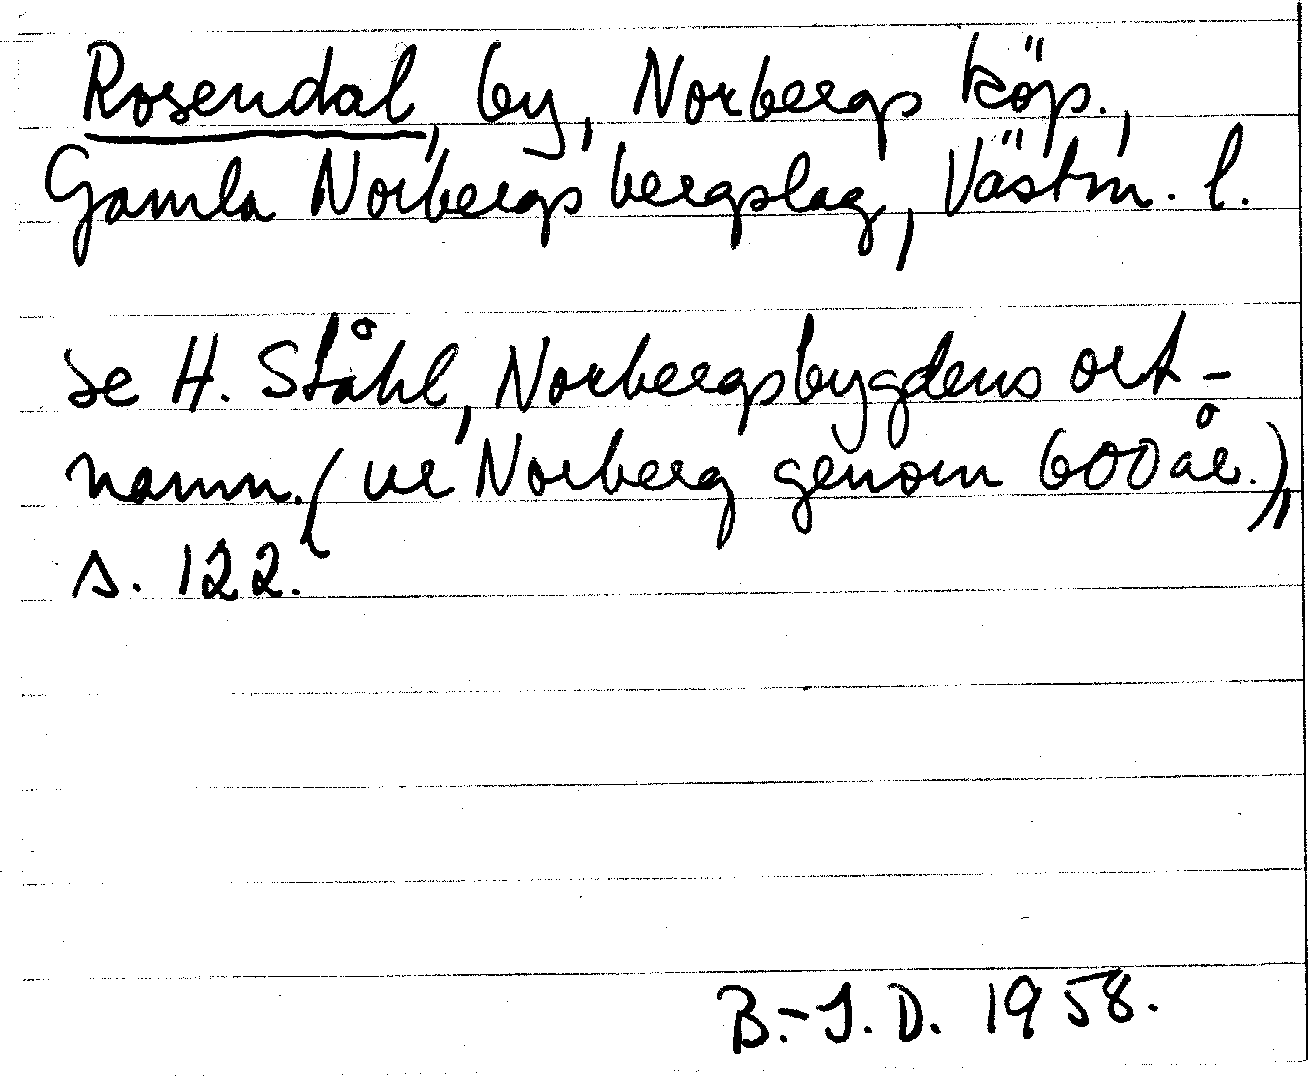 Rosendal, by, Norbergs köp.,
Gamla Norbergs bergslag, Västm. l.
se H. Ståhl, Norbergsbygdens ort-
namn. (ur Norberg genom 600 år.),
s. 122.
B.-J. D. 1958.